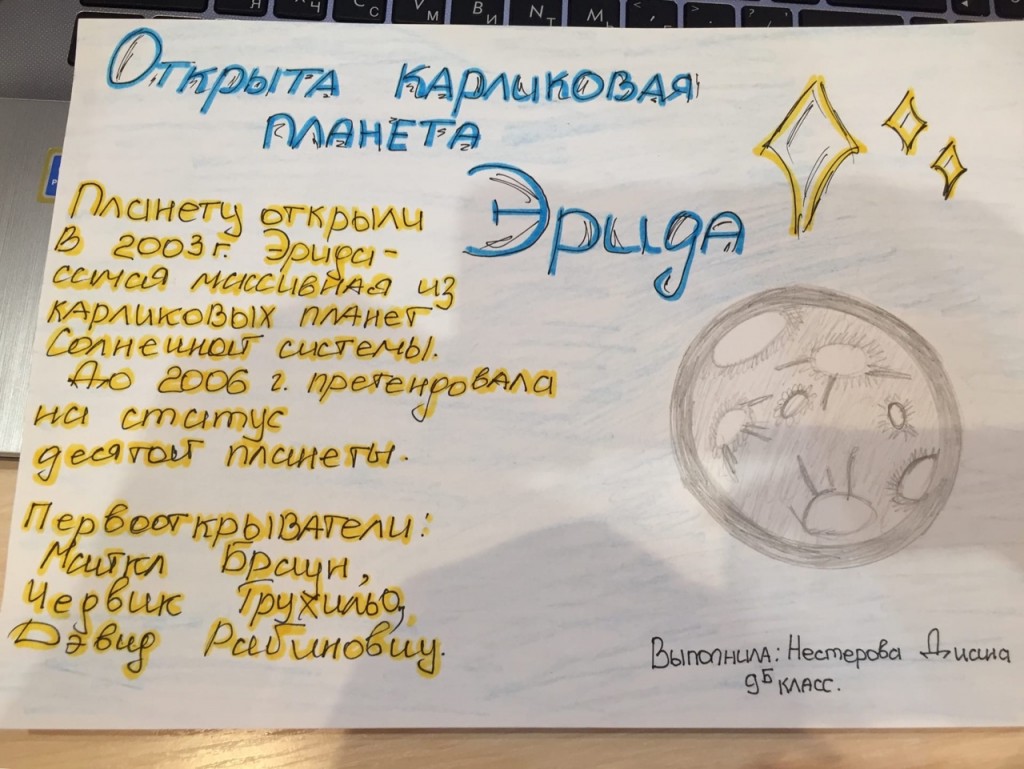 Открыта карликовая
планета
Эрида
Планету открыли
в 2003 г. Эрида -
самая массивная из
карликовых планет
Солнечной системы.
До 2006 г. претендовала
на статус
десятой планеты.
Первооткрыватели:
Майкл Браун,
Червик Трухильо,
Дэвид Рабиновиц.
Выполнила: Нестерова Диана
9Б класс.